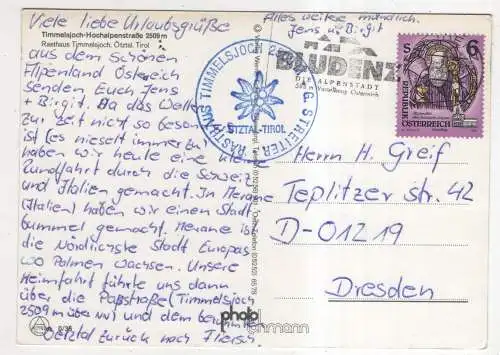 Viele liebe Urlaubsgrüße
Timmelsjoch-Hochalpenstraße 2509 m
Rasthaus Timmelsjoch, Ötztal, Tirol
aus dem schönen
Alpenland Österreich
senden Euch Jens
+ Birgit. Da das Wetter
zur Zeit nicht so besonders
ist (es nieselt immerzu)
haben wir heute eine kleine
Rundfahrt durch die Schweiz
und Italien gemacht. In Merane
(Italien) haben wir einen Stadt-
bummel gemacht. Merane ist
die Nördlichste Stadt Europas
wo Palmen wachsen. Unsere
Heimfahrt führte uns dann
über die Paßstraße (Timmelsjoch
2509 m über NN) und dem
Oetztal zurück nach
Alles weitere mündlich.
Jens u. Birgit
BLUDENZ
DIE ALPENSTADT
RASTHAUS TIMMELSJOCH
STREITER
ÖTZTAL-TIROL
S 6
REPUBLIK
ÖSTERREICH
Herrn H. Greif
Teplitzer str. 42
D-01219
Dresden
photo